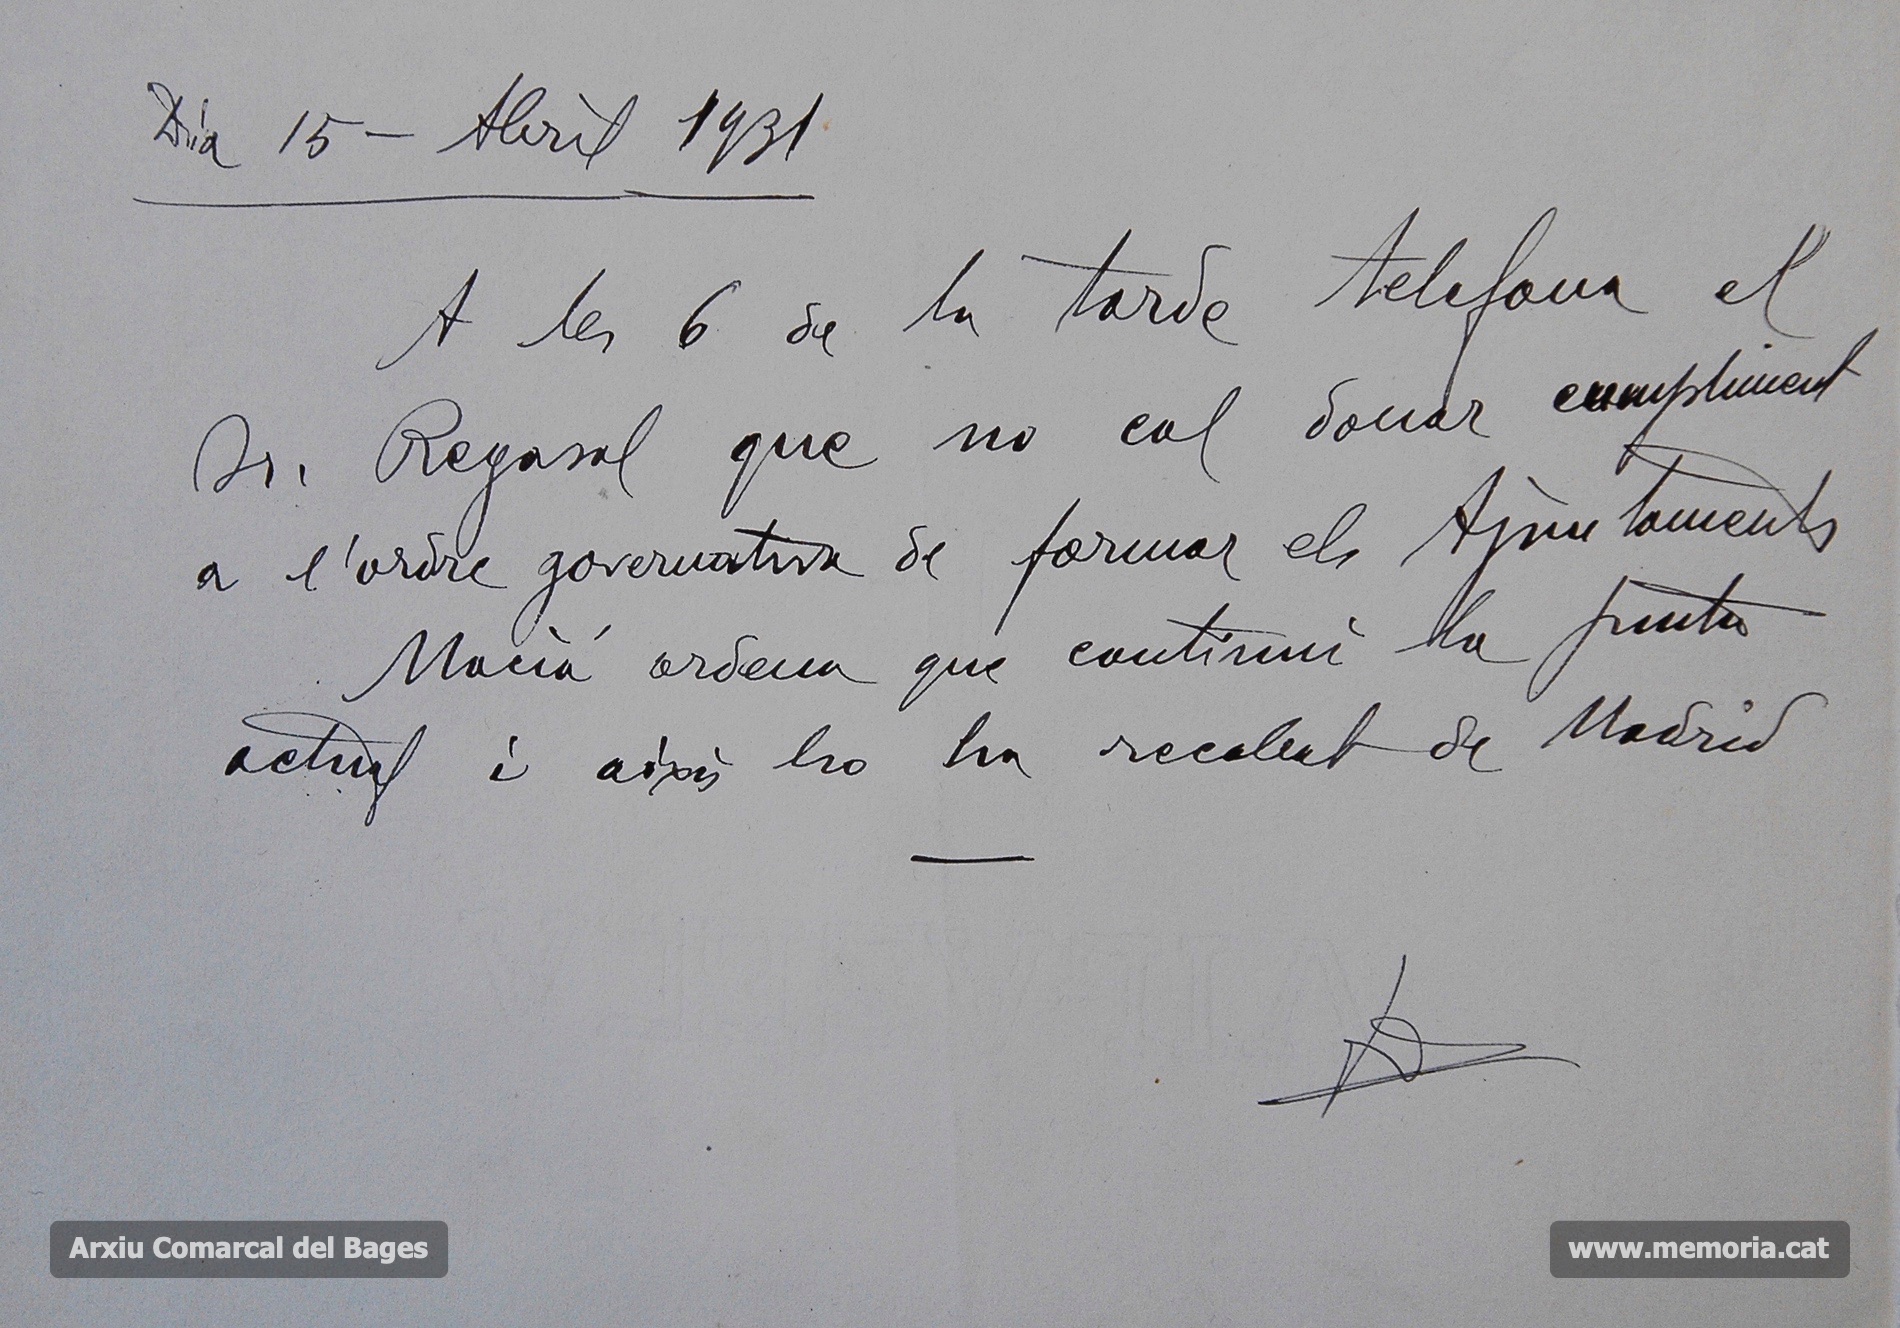 Dia 15 - Abril 1931
A les 6 de la tarde telefona el
Sr. Regasol que no cal donar cumpliment
a l'ordre governativa de formar els Ajuntaments
Macià ordena que continui la junta
actual i aixís ho ha recabat de Madrid
Arxiu Comarcal del Bages
www.memoria.cat